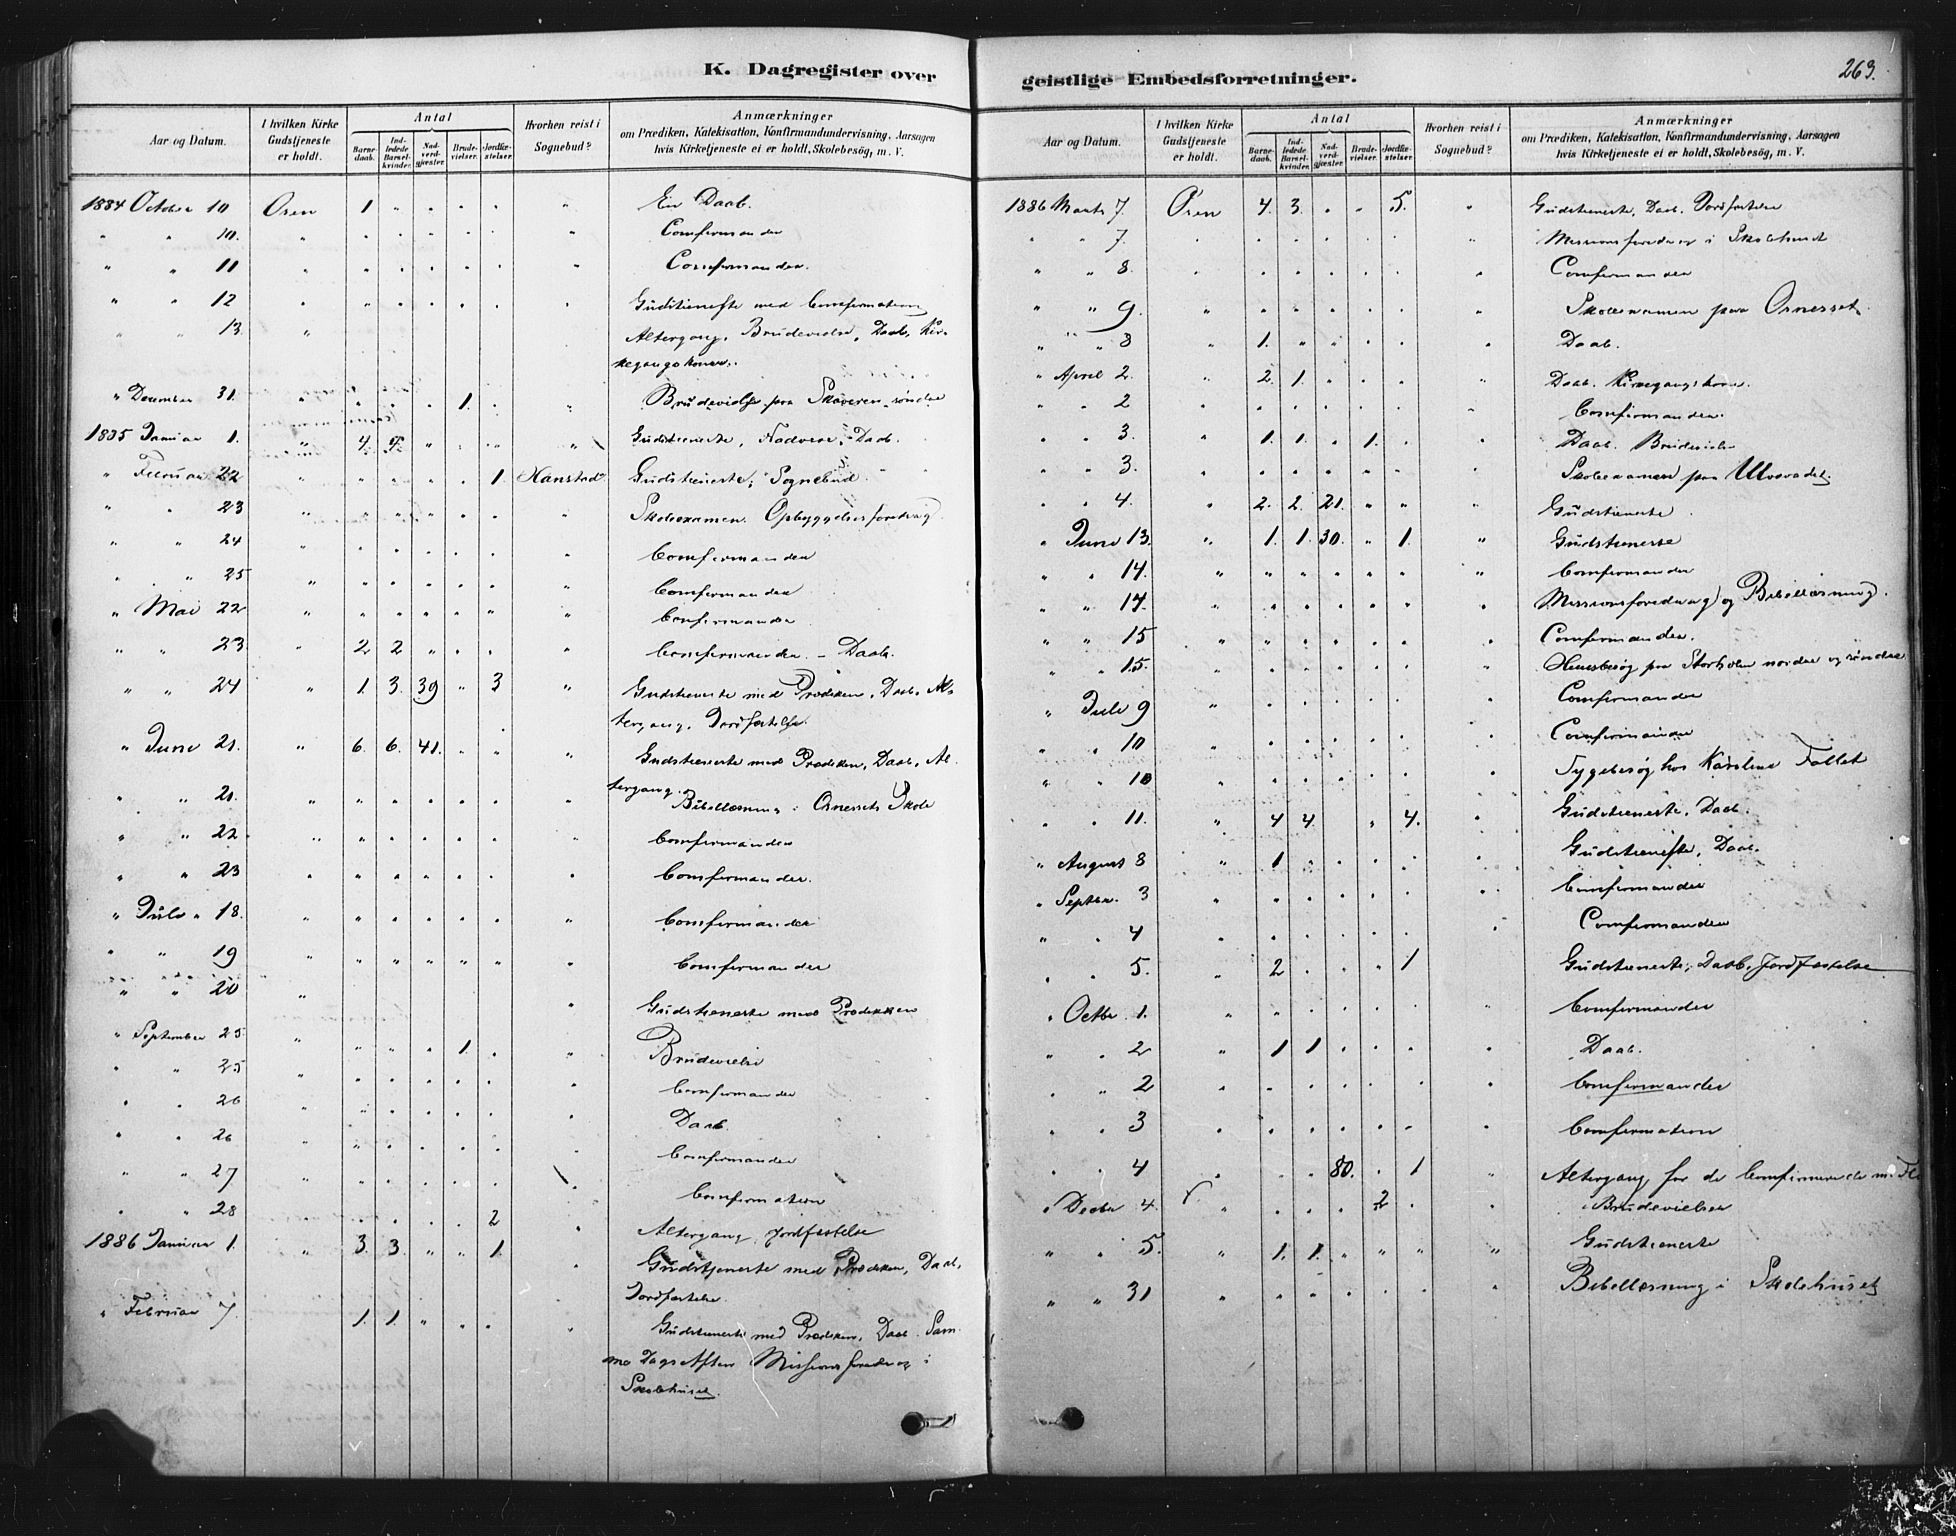 K. Dagregister over
Aar og Datum.
I hvilken Kirke Gudstjeneste er holdt.
Antal
Barnedaab.
Indledede Barselkvinder.
Nadverdgjæster.
Brudevielser.
Jordfæstelser.
Hvorhen reist i Sognebud?
Anmærkninger
om Prædiken, Katekisation, Konfirmandundervisning, Aarsagen
hvis Kirketjeneste ei er holdt, Skolebesög, m. V.
1884 October 10 Osen 1 " " " " " En Daab.
" " 10. " " " " " " " Comfirmander
" " 11 " " " " " " " Comfirmander.
" " 12 " " " " " " " Gudstienste med Comfirmation
" " 13 " Altergang, Brudevielse, Daab, Kir-
kegangskoner.
" December 31. " " " " 1. " " Brudevielse paa
1885 Januar 1. " 4. " " " " Gudstieneste, Nadver, Daab.
" Februar 22 " " " " " 1. Hanstad Gudstieneste, Sognebud
" " 23 " " " " " " " Skoleexamen. Opbyggelsesforedrag
" " 24 " " " " " " " Comfirmander
" " 25 " " " " " " " Comfirmander
" Mai 22 " " " " " " " Comfirmander
" " 23. " 2 2 " " " " Comfirmander. - Daab.
" " 24 " 1. 3. 39 " 3 " Gudstieneste med Prædiken, Daab, Al-
tergang, Jordfæstelse.
" Juni 21. " 6. 6. 41. " " " Gudstieneste med Prædiken, Daab, Al-
tergang.
" " 21. " " " " " " " Bibellæsning i Osnesets Skole
" " 22. " " " " " " " Comfirmander
" " 23 " " " " " " " Comfirmander.
" Juli " 18. " " " " " " " Comfirmander
" " 19 " " " " " " " Comfirmander
" " 20 " " Gudstieneste med Prædikken
" September 25. " " " " 1. " " Brudevielse
" " 25 " " " " " " " Comfirmander
" " 26 " " " " " " " Daab.
" " 26 " " " " " " " Comfirmander
" " 27 " " " " " " Comfirmation
" " 28 " " " " " 2 " Altergang, Jordfæstelse
1886 Januar 1. " 3. 3. " " 1. " Gudstjeneste med Prædiken, Daab,
Jordfæstelse
" Februar 7. 1. 1. " " " " Gudstieneste med Prædiken, Daab. Sam-
me Dags Aften Missionsforedrag i
Skolehuset.
geistlige Embedsforretninger.
263.
Aar og Datum.
I hvilken Kirke Gudstjeneste er holdt.
Antal
Barnedaab.
Indledede Barselkvinder.
Nadverdgjæster.
Brudevielser.
Jordfæstelser.
Hvorhen reist i Sognebud?
Anmærkninger
om Prædiken, Katekisation, Konfirmandundervisning, Aarsagen
hvis Kirketjeneste ei er holdt, Skolebesög, m. V.
1886 Marts 7. Osen 4. 3. " " 5. " Gudstieneste, Daab. Jordfæstelse
" " 7. " " " " " " " Missionsforedrag i Skolehuset
" " 8. " " " " " " " Comfirmander
" " 9. " " " " " " " Skoleexamen paa Osnesset
" " 8 " 1. " " " " " Daab.
" April 2. " 2. 1. " " " " Daab. Kirkegangskone.
" " 2 " " " " " " " Comfirmander.
" " 3. " 1. 1. " 1. " " Daab. Brudevielse
" " 3. " " " " " " " Skoleexamen paa Ulvevadet.
" " 4. " 2. 2. 21. " " " Gudstieneste.
" Juni 13. " 1. 1. 30. " 1. " Gudstieneste
" " 14. " " " " " " " Comfirmander
" " 14. " " " " " " " Missionsforedrag og Bibellæsning.
" " 15 " " " " " " " Comfirmander.
" " 15. " " " " " " " Huusbesøg paa Storholm nordre og søndre
" Juli 9 " " " " " " " Comfirmander
" " 10 " " " " " " " Comfirmander
" " 10 " " " " " " " Sygebesøg hos Karoline Fallet
" " 11. " 4 4 " 4. " Gudstieneste, Daab.
" August 8 " 1 " " " " " Gudstieneste, Daab.
" Septbr. 3 " " " " " " " Comfirmander
" " 4 " " " " " " " Comfirmander
" " 5. " 2 " " " 1 Gudstieneste, Daab, Jordfæstelse
" Octbr. 1. " " " " " " " Comfirmander
" " 2 " 1 1 " " " " Daab.
" " 2 " " " " " " " Comfirmander
" " 3 " " " " " " " Comfirmation
" " 4 " " " 80. " 1 " Altergang for de Comfirmerede m. Fl
" Decbr 4. " " " " 2 " " Brudevielser
" " 5. " 1. 1. " " " " Gudstieneste
" " 31 " " " " " " " Bibellæsning i Skolehuset